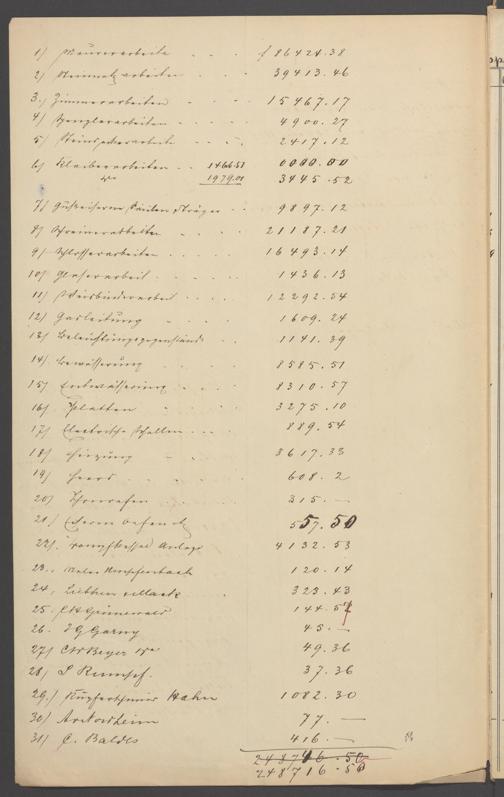 1) Maurerarbeiten - - - f 86424.38
2) Steinmetzarbeiten - - - 39413.46
3.) Zimmerarbeiten - - - 15467.17
4) Spenglerarbeiten - - - 4900.27
5)
2417.12
6) Kleiberarbeiten - - 1466.51 0000.00
1979.01 3445.52
7) Gußeiserne Säulen, Träger - - 9897.12
8) Schreinerarbeiten - - 21187.21
9) Schlosserarbeiten - - - - 16493.14
10) Glaserarbeit - - - - 1436.13
11) Weisbinderarbeit - - - - 12292.54
12) Gasleitung - - - 1609.24
13) Beleuchtungsgegenstände - - 1141.39
14) Bewässerung - - - 8585.51
15) Entwässerung - - - - 8310.57
16) Platten - - - 3275.10
17) Electrische Schellen - - - 889.54
18) Heizung - - - 3617.33
19) Heerd - - - 608.2
20) - - - 315.—
21) 557.50
22) Dampfkessel Anlage 4132.53
23. 120.14
24, 323.43
25. 144.57
26. 45.—
27) C W Beyer Wve 49.36
28) 37.36
29.) Kupferschmied Hahn 1082.30
30) 77.—
31) C. Baldes 416.—
248746.50
248716.50